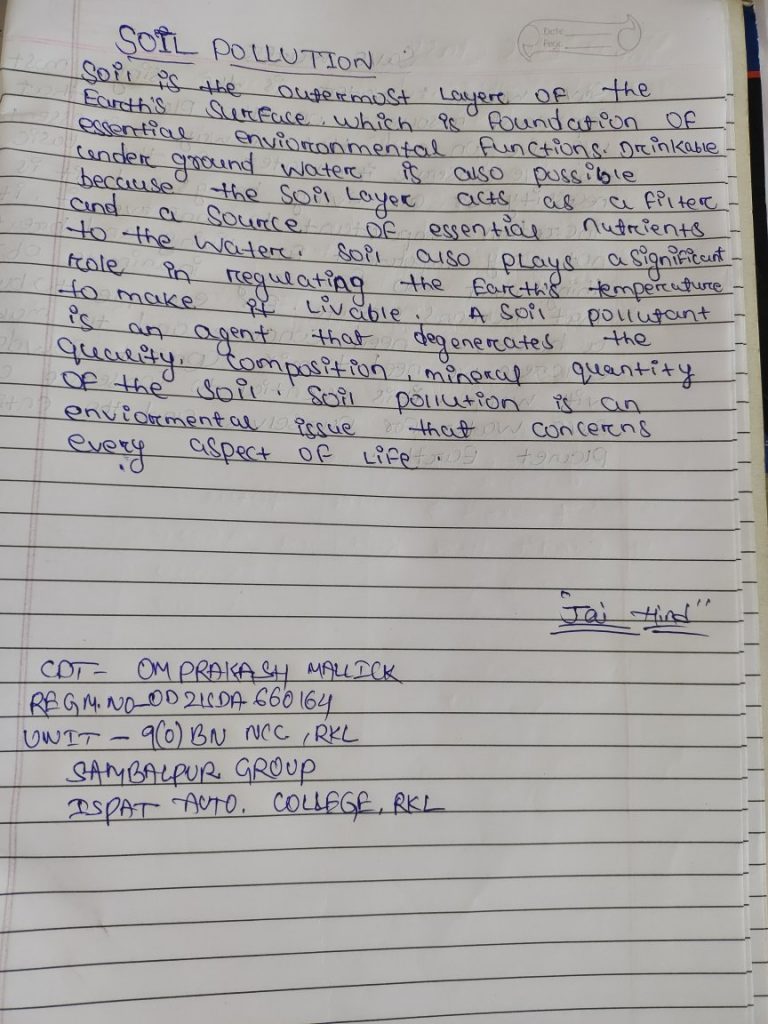 Date
Page
SOIL POLLUTION
Soil is the outermost Layer of the
Earth's Surface. which is foundation of
essential enviornmental functions. Drinkable
under ground water is also possible
because the soil Layer acts as a filter
and a source of essential nutrients
to the water. Soil also plays a significant
role in regulating the Earth's temperature
to make it Livable. A soil pollutant
is an agent that degenerates the
quality. composition mineral quantity
of the soil. Soil pollution is an
enviormental issue that concerns
every aspect of Life.
"Jai Hind"
CDT- OM PRAKASH MALLICK
REGM.NO-OD21SDA660164
UNIT - 9(O) BN NCC, RKL
SAMBALPUR GROUP
ISPAT AUTO. COLLEGE, RKL